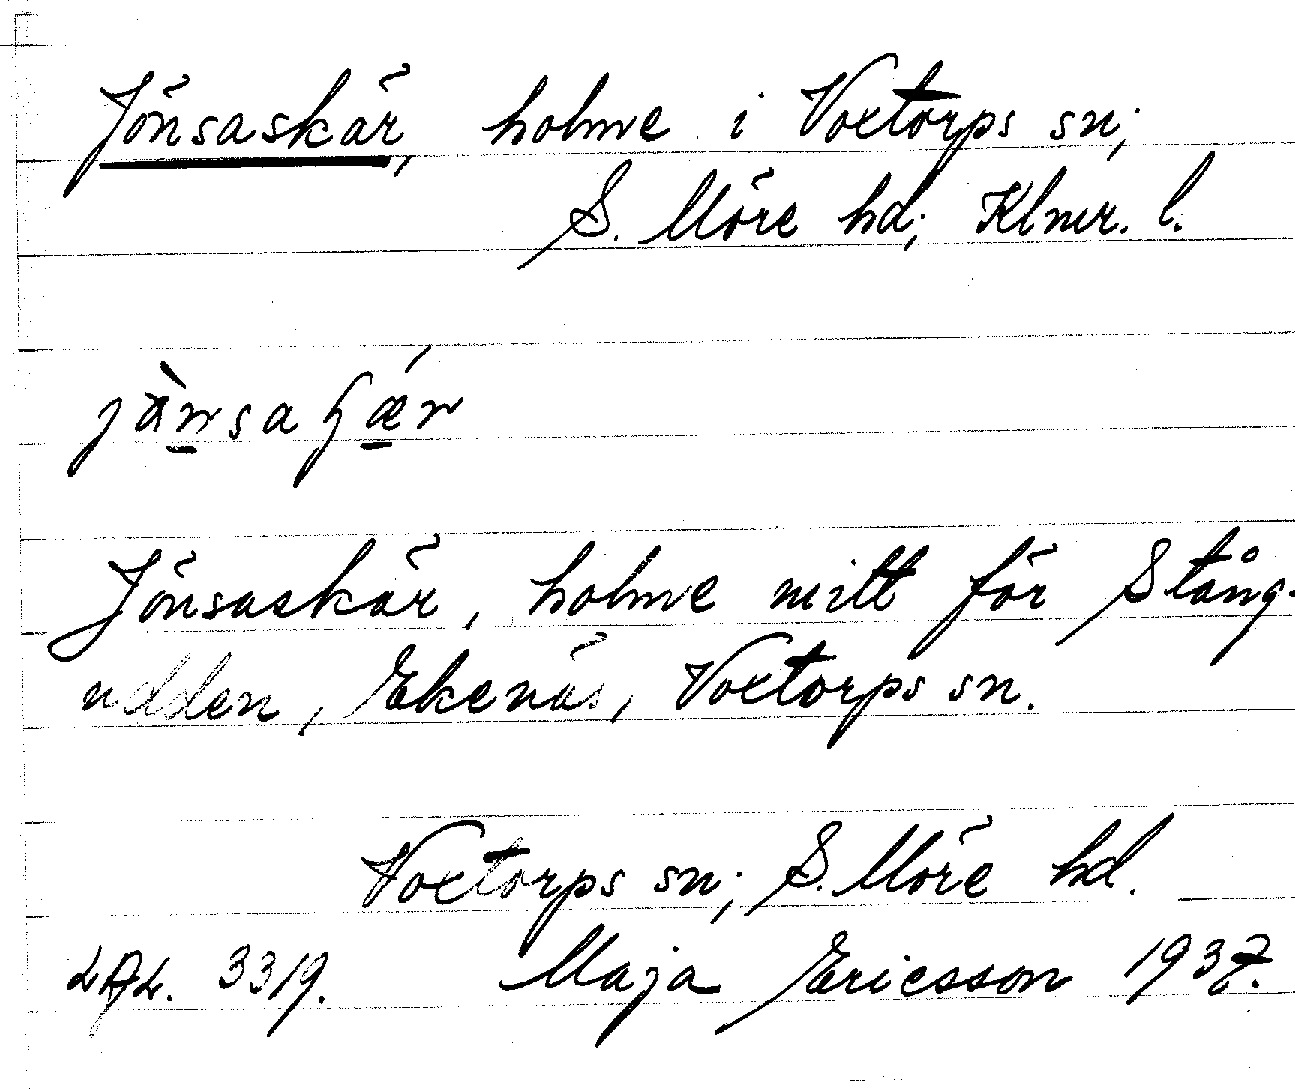 Jönsaskär, holme i Voxtorps sn;
S. Möre hd; Klmr. l.
Jönsaskär, holme mitt för Stång-
udden, Ekenäs, Voxtorps sn.
Voxtorps sn; S. Möre hd.
3319. Maja Ericsson 1937.